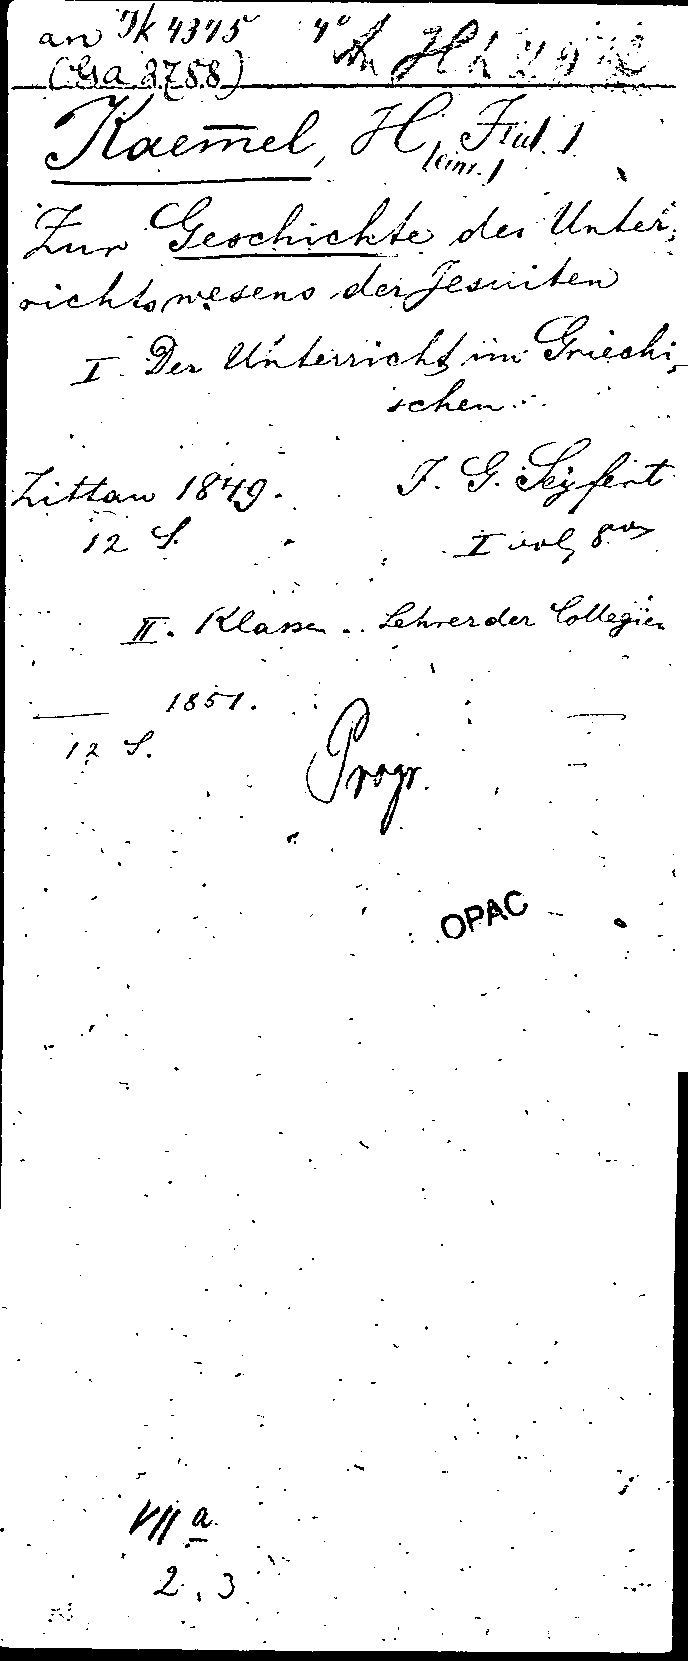 an Ik 4345 4°
(Ga 2788)
Kaem̅el, H.
(einr.)
Zur Geschichte des Unter-
richtswesens der Jesuiten
I. Der Unterricht im Griechi-
schen.
Zittau 1849. J. G. Seyfert
12 S. I vol, 8vo
II. Klassen. Lehrer der Collegien
— 1851. —
12 S.
Progr.
OPAC
VII a
2, 3